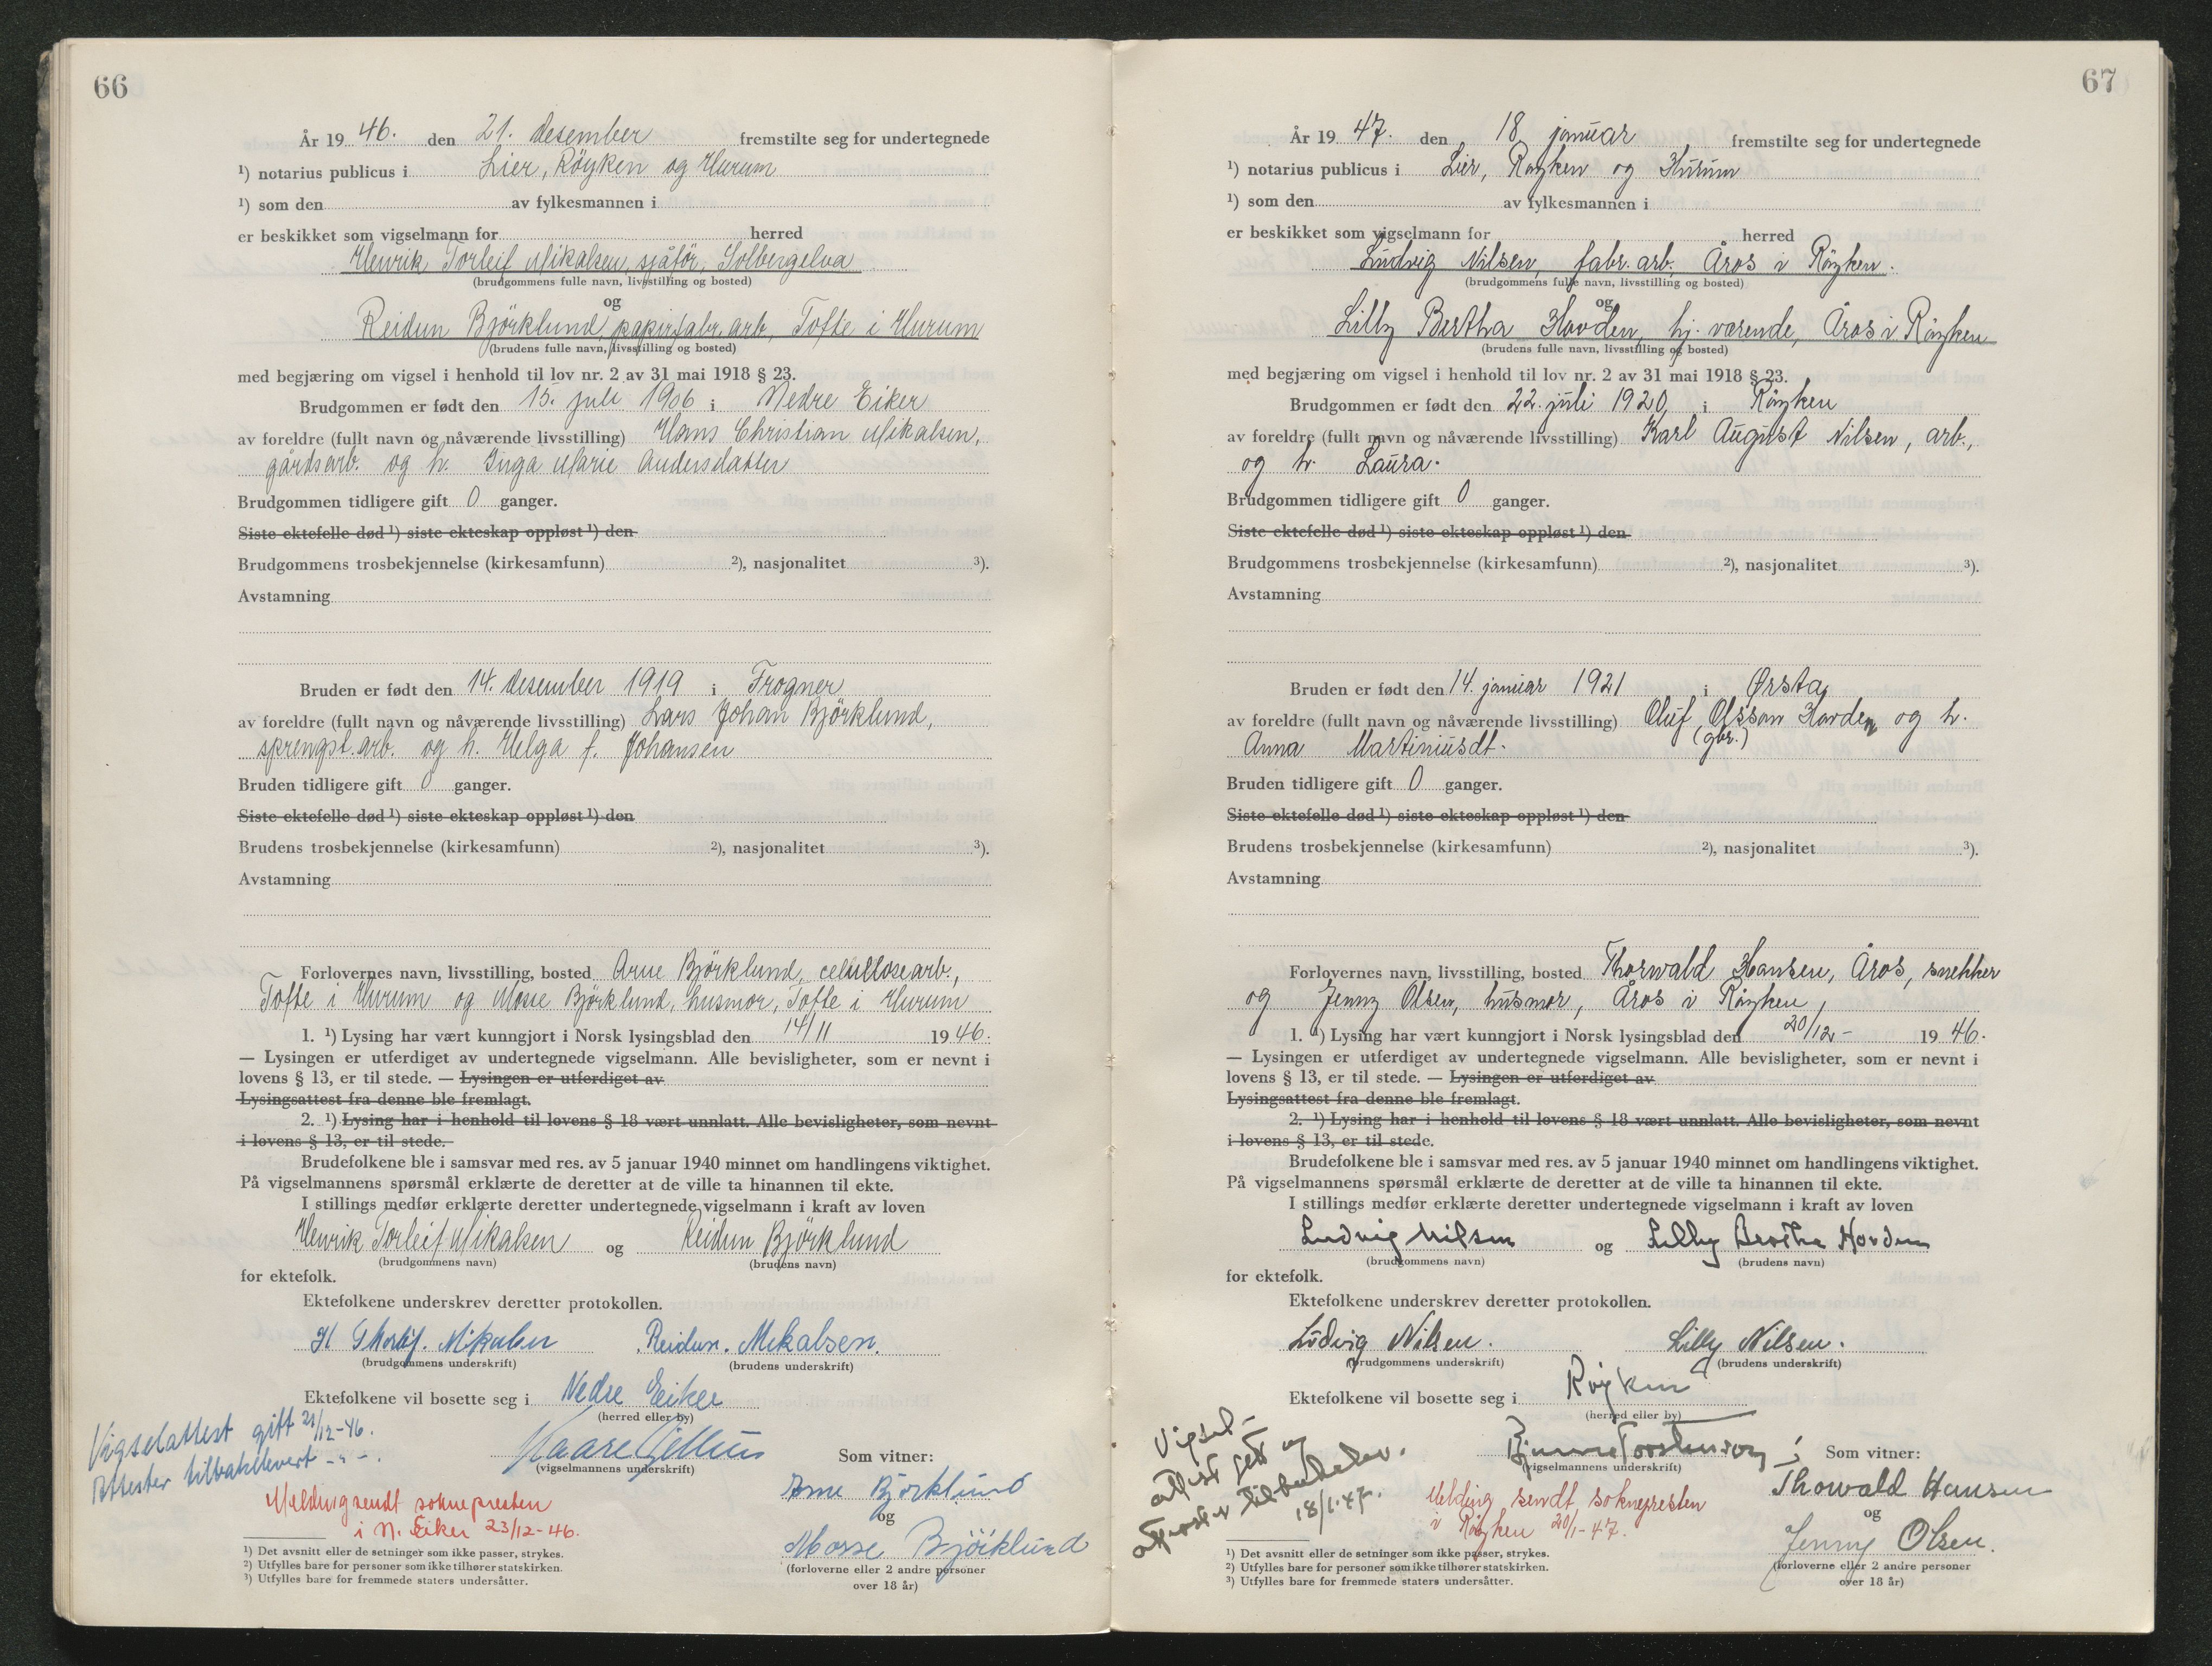 66
År 19 46. den 21. desember fremstilte seg for undertegnede
¹) notarius publicus i Lier, Röyken og Hurum
¹) som den av fylkesmannen i
er beskikket som vigselmann for herred
Henrik Torleif Mikalsen, sjåför, Solbergelva
(brudgommens fulle navn, livsstilling og bosted)
og
Reidun Björklund, papirfabr.arb., Tofte i Hurum
(brudens fulle navn, livsstilling og bosted)
med begjæring om vigsel i henhold til lov nr. 2 av 31 mai 1918 § 23.
Brudgommen er født den 15. juli 1906 i Nedre Eiker
av foreldre (fullt navn og nåværende livsstilling) Hans Christian Mikalsen,
gårdsarb. og h. Inga Marie Andersdatter
Brudgommen tidligere gift 0 ganger.
Siste ektefelle død ¹) siste ekteskap oppløst ¹) den
Brudgommens trosbekjennelse (kirkesamfunn) ²), nasjonalitet ³).
Avstamning
Bruden er født den 14. desember 1919 i Frogner
av foreldre (fullt navn og nåværende livsstilling) Lars Johan Björklund,
sprengst.arb. og h. Helga f. Johansen
Bruden tidligere gift 0 ganger.
Siste ektefelle død ¹) siste ekteskap oppløst ¹) den
Brudens trosbekjennelse (kirkesamfunn) ²), nasjonalitet ³).
Avstamning
Forlovernes navn, livsstilling, bosted Arne Björklund, cellulosearb.,
Tofte i Hurum og Mosse Björklund, husmor, Tofte i Hurum
1. ¹) Lysing har vært kunngjort i Norsk lysingsblad den 14/11 19 46.
— Lysingen er utferdiget av undertegnede vigselmann. Alle bevisligheter, som er nevnt i
lovens § 13, er til stede. — Lysingen er utferdiget av
Lysingsattest fra denne ble fremlagt.
2. ¹) Lysing har i henhold til lovens § 18 vært unnlatt. Alle bevisligheter, som nevnt
i lovens § 13, er til stede.
Brudefolkene ble i samsvar med res. av 5 januar 1940 minnet om handlingens viktighet.
På vigselmannens spørsmål erklærte de deretter at de ville ta hinannen til ekte.
I stillings medfør erklærte deretter undertegnede vigselmann i kraft av loven
Henrik Torleif Mikalsen og Reidun Björklund
(brudgommens navn) (brudens navn)
for ektefolk.
Ektefolkene underskrev deretter protokollen.
H Thorleif. Mikalsen Reidun. Mikalsen.
(brudgommens underskrift) (brudens underskrift)
Ektefolkene vil bosette seg i Nedre Eiker
(herred eller by)
Vigselattest gitt 21/12-46.
Attester tilbakelevert - " - .
Kaare
(vigselmannens underskrift)
Som vitner:
Arne Björklund
og
Mosse Björklund
(forloverne eller 2 andre personer
over 18 år)
Melding sendt sognepresten
i N. Eiker 23/12-46.
¹) Det avsnitt eller de setninger som ikke passer, strykes.
²) Utfylles bare for personer som ikke tilhører statskirken.
³) Utfylles bare for fremmede staters undersåtter.
67
År 19 47. den 18 januar fremstilte seg for undertegnede
¹) notarius publicus i Lier, Røyken og Hurum
¹) som den av fylkesmannen i
er beskikket som vigselmann for herred
Ludvig Nilsen, fabr. arb. Åros i Röyken.
(brudgommens fulle navn, livsstilling og bosted)
og
Lilly Bertha Hovden, hj. værende, Åros i Röyken
(brudens fulle navn, livsstilling og bosted)
med begjæring om vigsel i henhold til lov nr. 2 av 31 mai 1918 § 23.
Brudgommen er født den 22. juli 1920, i Röyken
av foreldre (fullt navn og nåværende livsstilling) Karl August Nilsen, arb.,
og h. Laura.
Brudgommen tidligere gift 0 ganger.
Siste ektefelle død ¹) siste ekteskap oppløst ¹) den
Brudgommens trosbekjennelse (kirkesamfunn) ²), nasjonalitet ³).
Avstamning
Bruden er født den 14. januar 1921 i Ørsta,
av foreldre (fullt navn og nåværende livsstilling) Oluf Olsson Hovden og h.
(gbr.)
Anna Martiniusdt.
Bruden tidligere gift 0 ganger.
Siste ektefelle død ¹) siste ekteskap oppløst ¹) den
Brudens trosbekjennelse (kirkesamfunn) ²), nasjonalitet ³).
Avstamning
Forlovernes navn, livsstilling, bosted Thorwald Hansen, Åros, snekker
og Jenny Olsen, husmor, Åros i Röyken,
1. ¹) Lysing har vært kunngjort i Norsk lysingsblad den 20/12- 19 46.
— Lysingen er utferdiget av undertegnede vigselmann. Alle bevisligheter, som er nevnt i
lovens § 13, er til stede. — Lysingen er utferdiget av
Lysingsattest fra denne ble fremlagt.
2. ¹) Lysing har i henhold til lovens § 18 vært unnlatt. Alle bevisligheter, som nevnt
i lovens § 13, er til stede.
Brudefolkene ble i samsvar med res. av 5 januar 1940 minnet om handlingens viktighet.
På vigselmannens spørsmål erklærte de deretter at de ville ta hinannen til ekte.
I stillings medfør erklærte deretter undertegnede vigselmann i kraft av loven
Ludvig Nilsen og Lilly Bertha Hovden
(brudgommens navn) (brudens navn)
for ektefolk.
Ektefolkene underskrev deretter protokollen.
Ludvig Nilsen. Lilly Nilsen.
(brudgommens underskrift) (brudens underskrift)
Ektefolkene vil bosette seg i Røyken
(herred eller by)
Vigsel-
attest gitt og
attester tilbakelev.
18/1.47.
Bjarne Torstenson
(vigselmannens underskrift)
Som vitner:
Thorwald Hansen
og
Jenny Olsen.
(forloverne eller 2 andre personer
over 18 år)
Melding sendt soknepresten
i Röyken 20/1-47.
¹) Det avsnitt eller de setninger som ikke passer, strykes.
²) Utfylles bare for personer som ikke tilhører statskirken.
³) Utfylles bare for fremmede staters undersåtter.